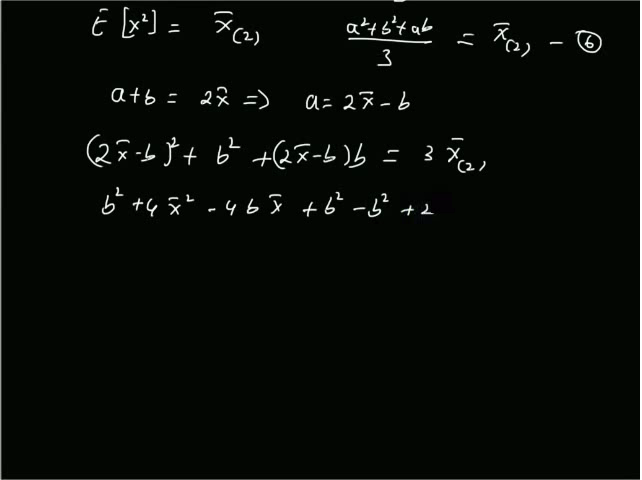 E [x²] = x̄₍₂₎ (a²+b²+ab)/3 = x̄₍₂₎ – ⑥
a+b = 2x̄ => a = 2x̄ – b
(2x̄–b)² + b² + (2x̄–b)b = 3 x̄₍₂₎
b² + 4x̄² – 4bx̄ + b² – b² + 2